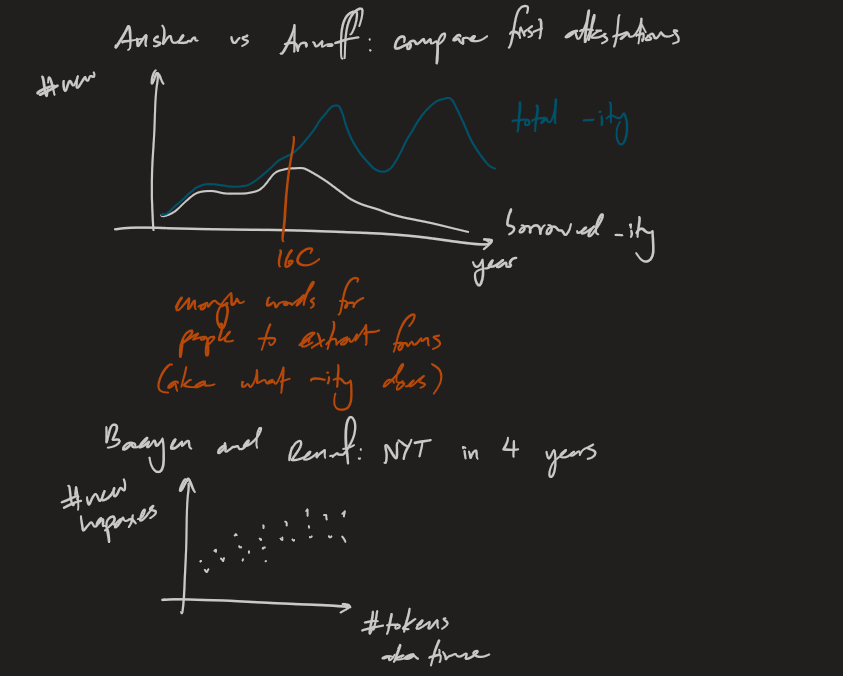 Anshen vs Aronoff: compare first attestations
#new
total -ity
borrowed -ity
year
16C
enough words for
people to extract forms
(aka what -ity does)
Baayen and Renouf: NYT in 4 years
#new
hapaxes
#tokens
aka time